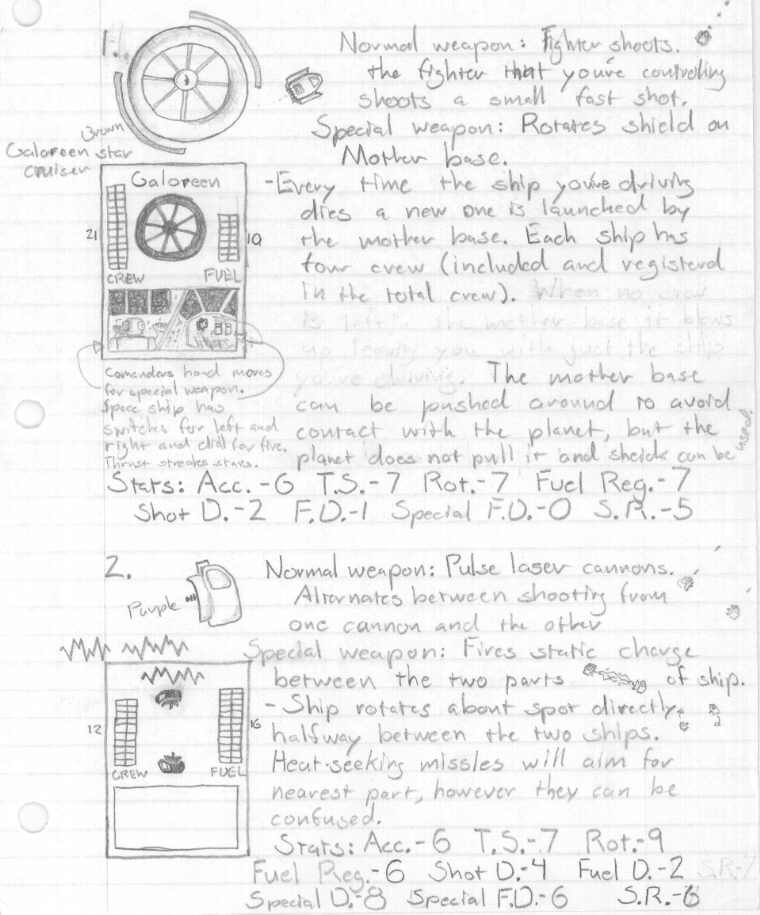 1.
Normal weapon: Fighter shoots.
the fighter that you're controling
shoots a small fast shot.
Special weapon: Rotates shield on
Mother base.
Brown
Galoreen star
cruiser
Galoreen
21
10
CREW
FUEL
-Every time the ship you're driving
dies a new one is launched by
the mother base. Each ship has
four crew (included and registerd
in the total crew). When no crew
is left in the mother base it blows
up leaving you with just the ship
you're driving. The mother base
can be pushed around to avoid
contact with the planet, but the
planet does not pull it and sheild can be
used.
Comanders hand moves
for special weapon.
Space ship has
switches for left and
right and dial for fire.
Thrust streaks stars.
Stats: Acc.-6 T.S.-7 Rot.-7 Fuel Reg.-7
Shot D.-2 F.D.-1 Special F.D.-0 S.R.-5
2.
Purple
Normal weapon: Pulse laser cannons.
Alternates between shooting from
one cannon and the other
Special weapon: Fires static charge
between the two parts of ship.
12
16
CREW
FUEL
- Ship rotates about spot directly
halfway between the two ships.
Heat-seeking missles will aim for
nearest part, however they can be
confused.
Stats: Acc.-6 T.S.-7 Rot.-9
Fuel Reg.-6 Shot D.-4 Fuel D.-2 S.R-7
Special D.-8 Special F.D.-6 S.R.-6